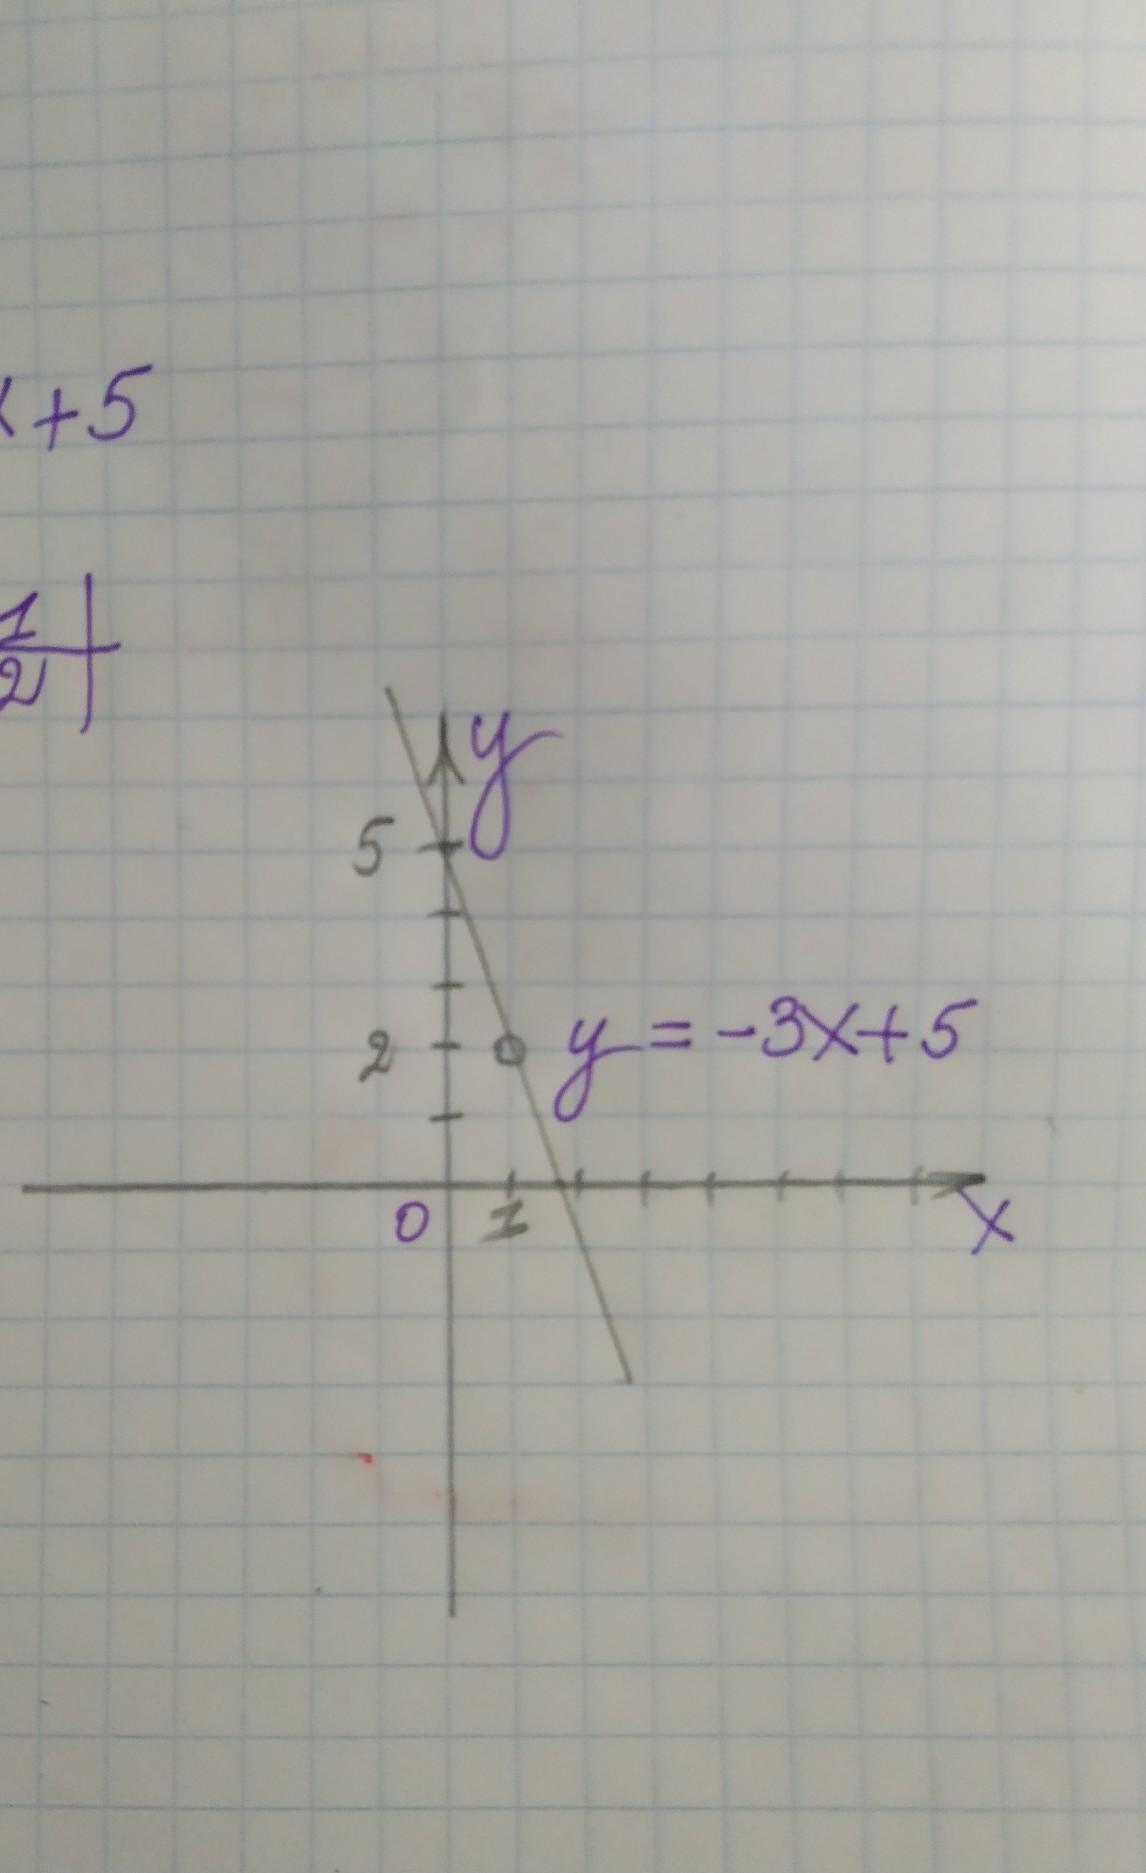 x+5
1
2
y
5
2
y = -3x+5
0
1
x